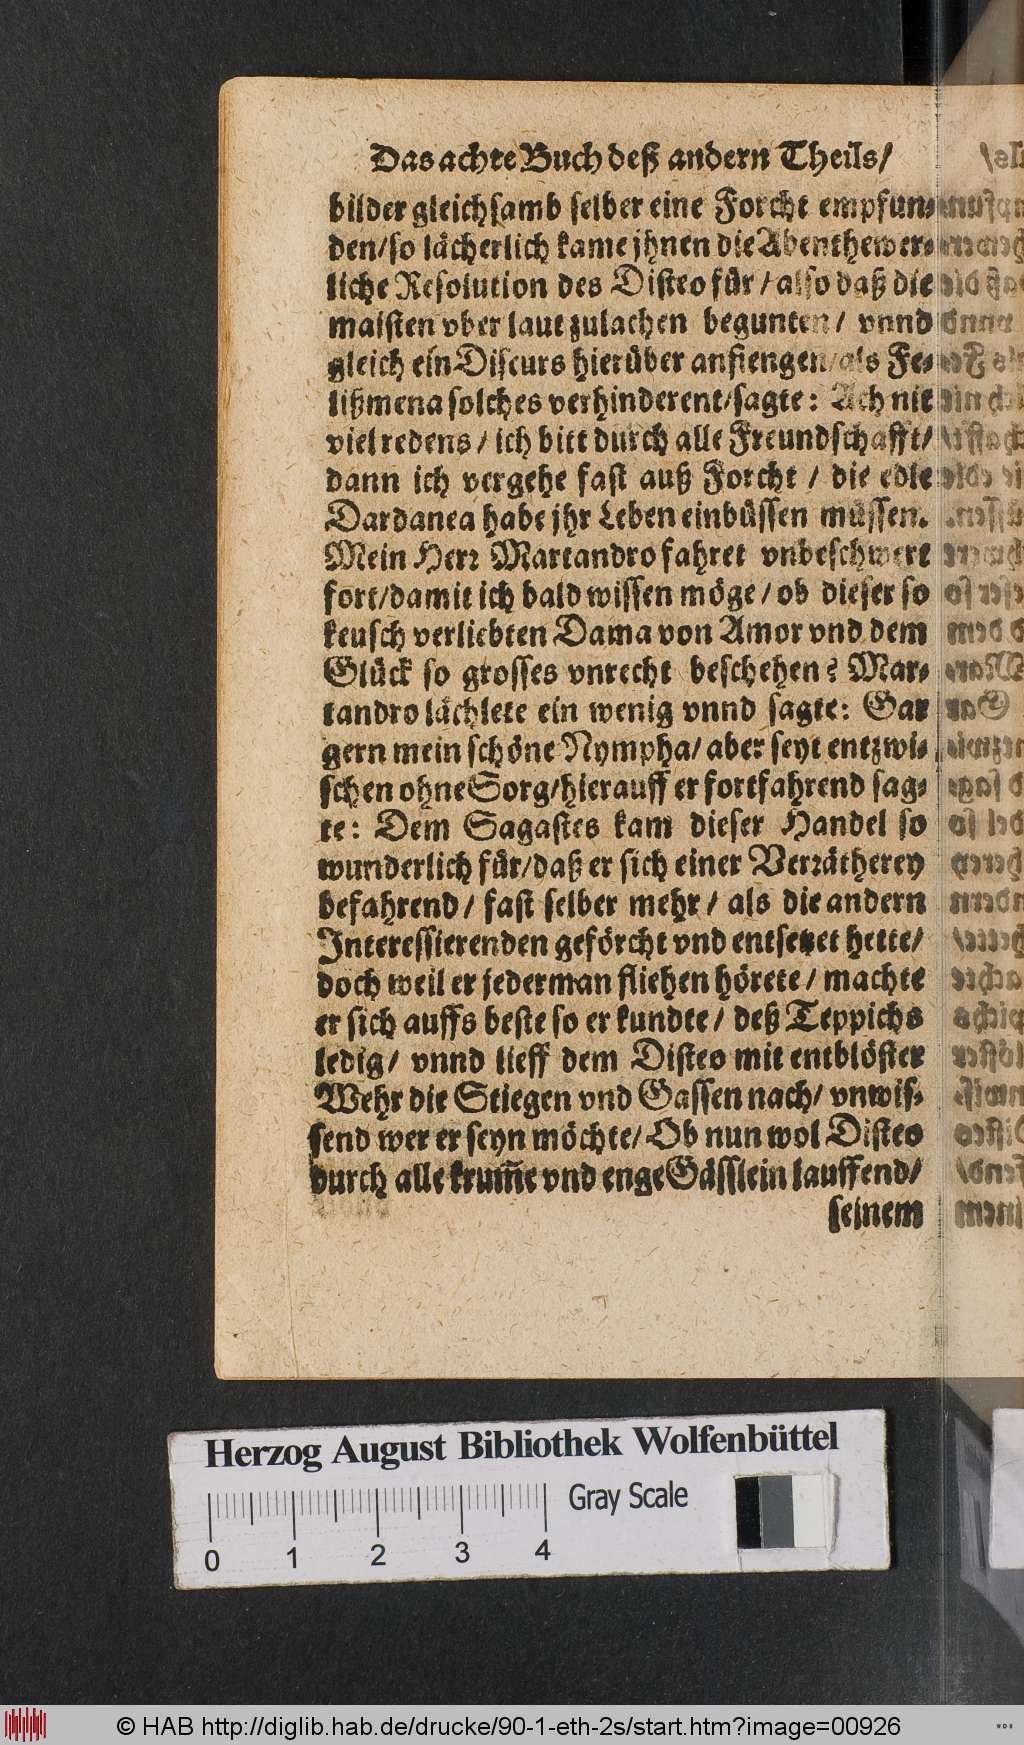 Das achte Buch deß andern Theils/
bilder gleichsamb selber eine Forcht empfun-
den/so lächerlich kame jhnen die Abenthewer-
liche Resolution des Disteo für / also daß die
maisten vber laut zulachen begunten / vnnd
gleich ein Discurs hierüber anfiengen/als Fe-
lißmena solches verhinderent/sagte: Ach nit
viel redens / ich bitt durch alle Freundschafft/
dann ich vergehe fast auß Forcht / die edle
Dardanea habe jhr Leben einbüssen müssen.
Mein Herr Martandro fahret vnbeschwert
fort/damit ich bald wissen möge / ob dieser so
keusch verliebten Dama von Amor vnd dem
Glück so grosses vnrecht beschehen? Mar-
tandro lächlete ein wenig vnnd sagte: Gar
gern mein schöne Nympha/ aber seyt entzwi-
schen ohne Sorg/hierauff er fortfahrend sag-
te: Dem Sagastes kam dieser Handel so
wunderlich für/daß er sich einer Verrätherey
befahrend/ fast selber mehr / als die andern
Interessierenden geförcht vnd entsetzet hette/
doch weil er jederman fliehen hörete / machte
er sich auffs beste so er kundte / deß Teppichs
ledig/ vnnd lieff dem Disteo mit entblöster
Wehr die Stiegen vnd Gassen nach/ vnwis-
send wer er seyn möchte/ Ob nun wol Disteo
durch alle krum̃e vnd enge Gässlein lauffend/
seinem
Herzog August Bibliothek Wolfenbüttel
Gray Scale
0 1 2 3 4
© HAB http://diglib.hab.de/drucke/90-1-eth-2s/start.htm?image=00926